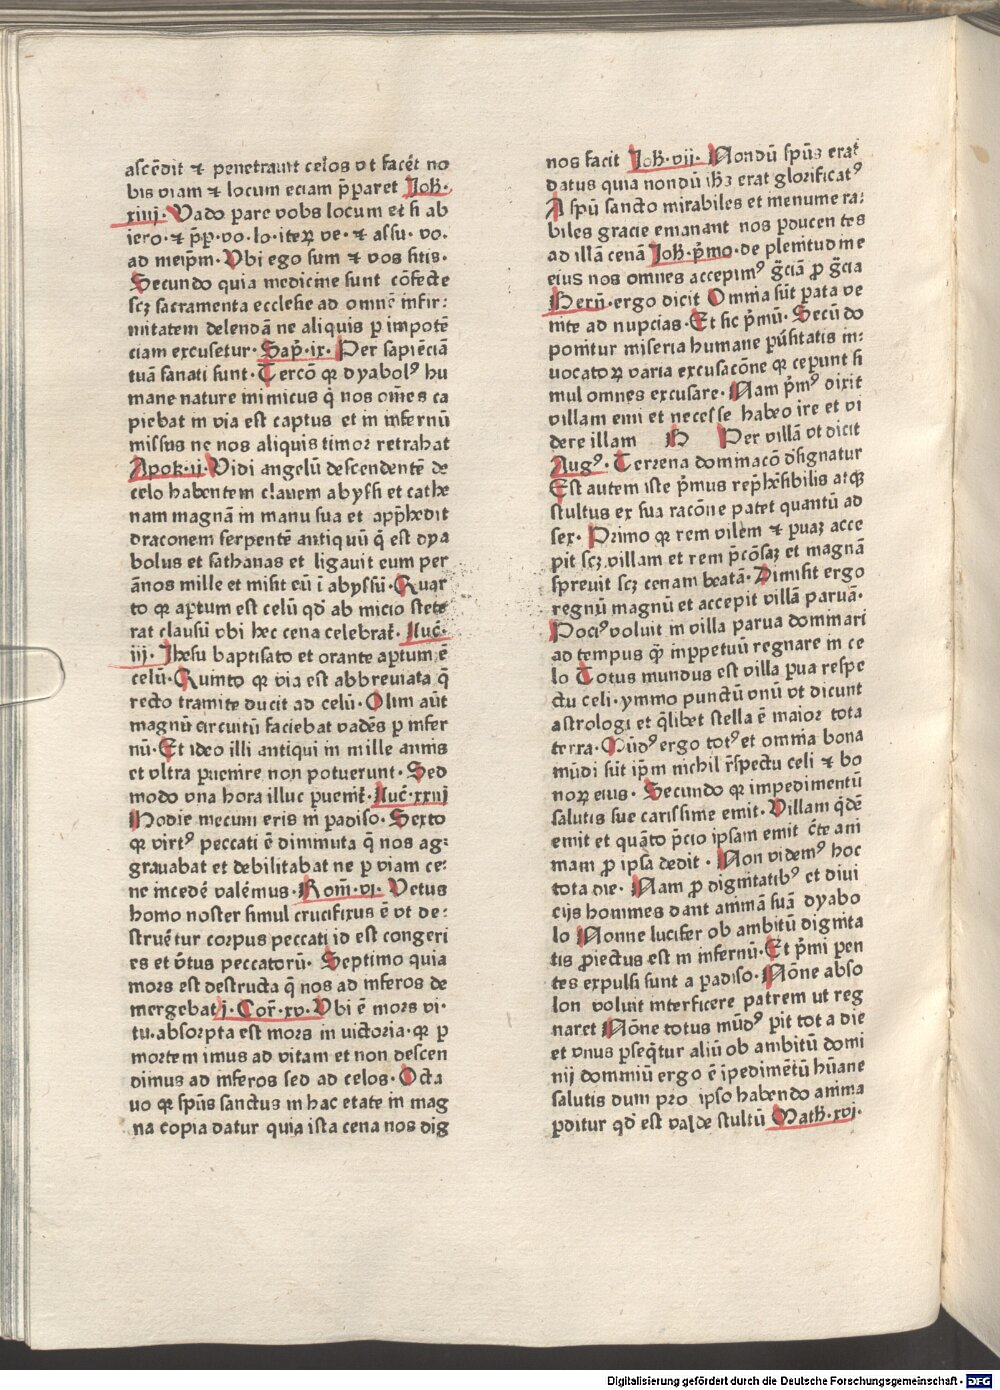 ascēdit ⁊ penetrauit celos vt facēt no
bis viam ⁊ locum eciam p̄paret Joh̄·
xiiij· Vado pare vobs locum et si ab
iero·⁊ p̄p·vo·lo·iteꝝ ve·⁊ assu·vo·
ad meip̄m· Vbi ego sum ⁊ vos sitis·
Secundo quia medicine sunt cōfecte
scꝫ sacramenta ecclesie ad omnē infir⸗
mitatem delendā ne aliquis ꝑ impotē
ciam excusetur· Sap̄·ix· Per sapiēciā
tuā sanati sunt· Tercō qꝛ dyabolꝰ hu
mane nature inimicus q̄ nos om̄es ca
piebat in via est captus et in infernū
missus ne nos aliquis timor retrahat
Apok·ij· Vidi angelū descendentē de
celo habentem clauem abyssi et cathe
nam magnā in manu sua et app̄hēdit
draconem serpentē antiquū q̄ est dya
bolus et sathanas et ligauit eum per
ānos mille et misit eū ī abyssū· Quar
to qꝛ aꝑtum est celū qd̄ ab inicio stete
rat clausū vbi hec cena celebraṫ· Luc̄·
iij· Jhesu baptisato et orante aꝑtum ē
celū· Quinto qꝛ via est abbreuiata q̄
recto tramite ducit ad celū· Olim aūt
magnū circuitū faciebat vadēs ꝑ infer
nū· Et ideo illi antiqui in mille annis
et vltra ꝑuenire non potuerunt· Sed
modo vna hora illuc ꝑueniṫ· Luc̄·xxiij
Hodie mecum eris in ꝑadiso· Sexto
qꝛ virtꝰ peccati ē diminuta q̄ nos ag⸗
grauabat et debilitabat ne ꝑ viam ce⸗
ne incedē valēmus· Rom̄·vi· Vetus
homo noster simul crucifixus ē vt de⸗
struētur corpus peccati id est congeri
es et v̄tus peccatorū· Septimo quia
mors est destructa q̄ nos ad inferos de
mergebat j·Cor̄·xv· Vbi ē mors vi⸗
tu·absorpta est mors in victoria·qꝛ ꝑ
mortem imus ad vitam et non descen
dimus ad inferos sed ad celos· Octa
uo qꝛ sp̄us sanctus in hac etate in mag
na copia datur quia ista cena nos dig
nos facit Joh̄·vii· Nondū sp̄us erat
datus quia nondū ih̄s erat glorificatꝰ
A sp̄u sancto mirabiles et innumera⸗
biles gracie emanant nos ꝓucentes
ad illā cenā Joh̄·p̄mo·de plenitudine
eius nos omnes accepimꝰ ḡciā ꝓ ḡcia
Hern̄·ergo dicit Omnia sūt ꝑata ve
nite ad nupcias· Et sic p̄mū· Secūdo
ponitur miseria humane ꝑūsitatis in⸗
uocatoꝝ varia excusacōne qꝛ ceperunt si
mul omnes excusare· Nam p̄mꝰ dixit
villam emi et necesse habeo ire et vi
dere illam H Per villā vt dicit
Augꝰ· Terrena dominacō d̄signatur
Est autem iste p̄mus rep̄hēsibilis atqꝫ
stultus ex sua racōne patet quantū ad
sex· Primo qꝛ rem vilem ⁊ ꝑuaꝫ acce
pit scꝫ villam et rem p̄cōsaꝫ et magnā
spreuit scꝫ cenam beatā· Dimisit ergo
regnū magnū et accepit villā paruā·
Pociꝰ voluit in villa parua dominari
ad tempus q̄ inꝑpetuū regnare in ce
lo Totus mundus est villa ꝑua respe
ctu celi·ymmo punctū vnū vt dicunt
astrologi et q̄libet stella ē maior tota
terra· Mūdꝰ ergo totꝰ et omnia bona
mūdi sūt ip̄m nichil r̄spectu celi ⁊ bo
noꝝ eius· Secundo qꝛ impedimentū
salutis sue carissime emit· Villam q̄dē
emit et quāto p̄cio ipsam emit c̄te ani
mam ꝓ ipsa dedit· Non videmꝰ hoc
tota die· Nam ꝓ dignitatibꝰ et diui
cijs homines dant animā suā dyabo
lo Nonne lucifer ob ambitū dignita
tis ꝓiectus est in infernū· Et p̄mi pen
tes expulsi sunt a ꝑadiso· Nōne abso
lon voluit interficere patrem ut reg
naret Nōne totus mūdꝰ ꝑit tota die
et vnus ꝑseq̄tur aliū ob ambitū domi
nij dominiū ergo ē īpedimētū hūane
salutis dum pro ipso habendo anima
ꝑditur qd̄ est valde stultū Math̄·xvj·
Digitalisierung gefördert durch die Deutsche Forschungsgemeinschaft - DFG